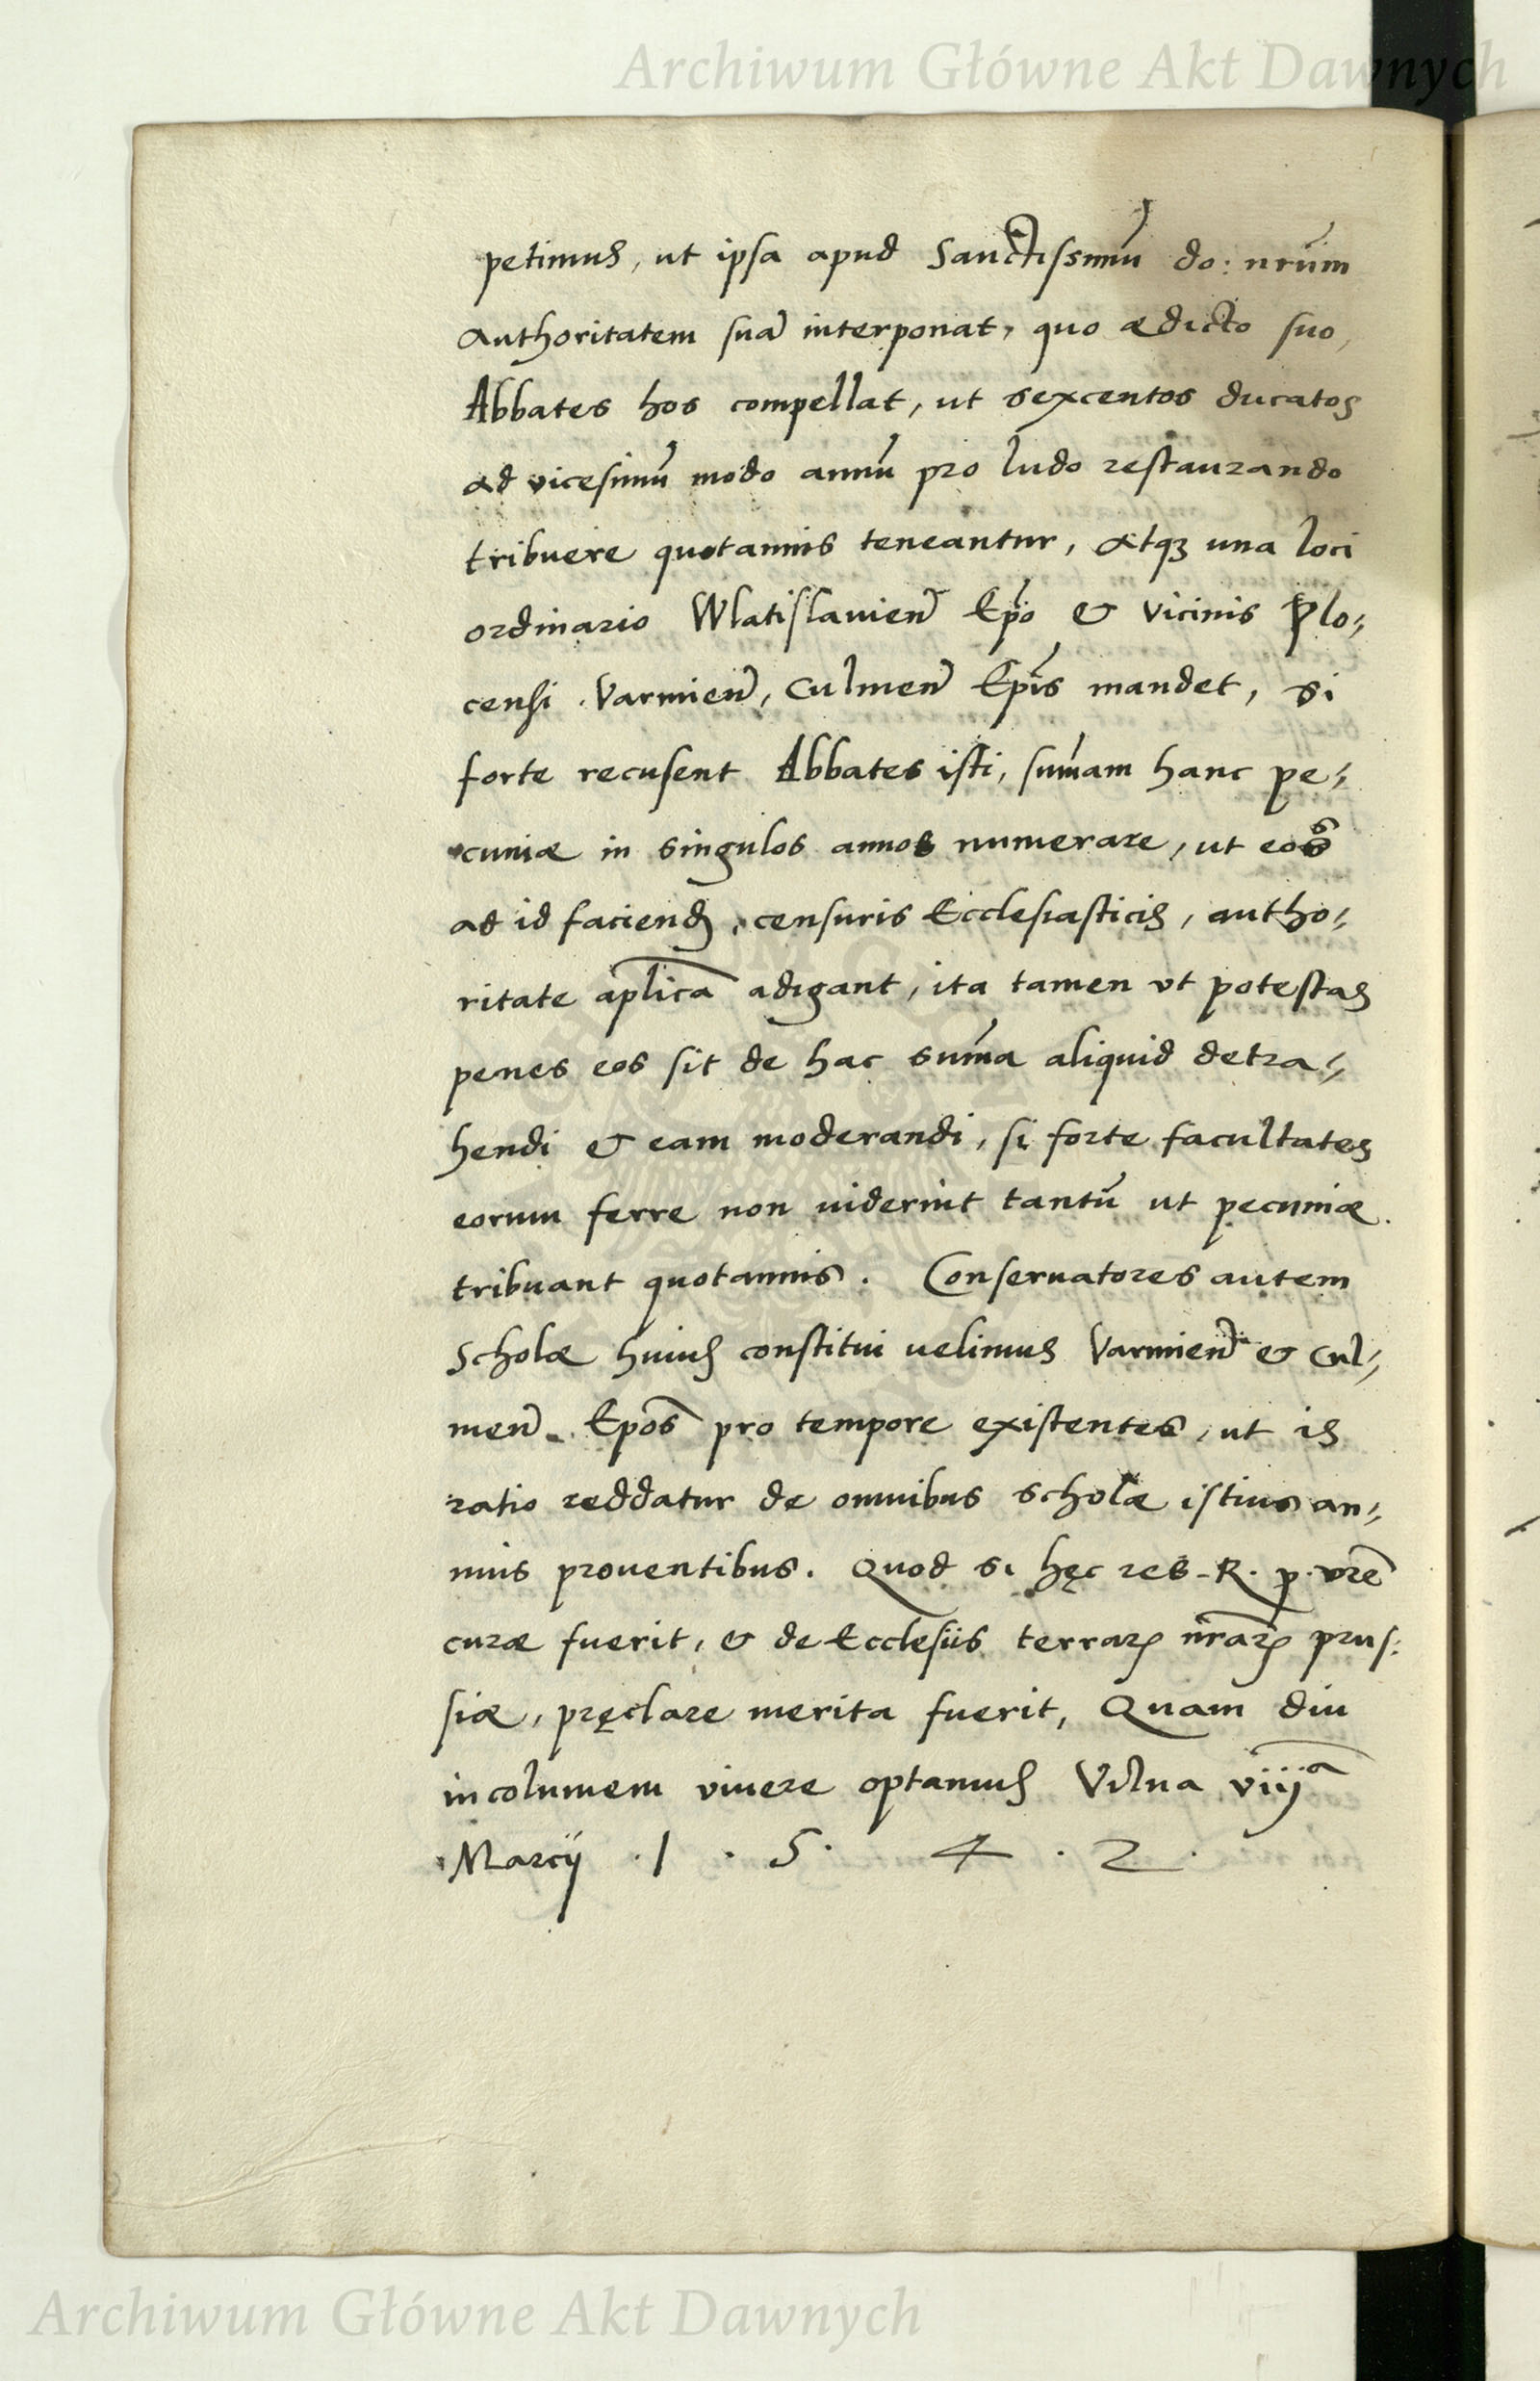 Archiwum Główne Akt Dawnych
petimus, ut ipsa apud Sanctissimū do: nrūm
Authoritatem suā interponat, quo ædicto suo,
Abbates hos compellat, ut sexcentos ducatos
ad vicesimū modo annū pro ludo restaurando
tribuere quotannis teneantur, atqꝫ una loci
ordinario Wlatislauien̄ Ep̄o & vicinis Plo-
censi Varmien̄, Culmen̄ Ep̄is mandet, si
forte recusent Abbates isti, sum̄am hanc pe-
cuniæ in singulos annos numerare, ut eos
ad id faciend, censuris Ecclesiasticis, autho-
ritate ap̄lica adigant, ita tamen ut potestas
penes eos sit de hac sum̄a aliquid detra-
hendi & eam moderandi, si forte facultates
eorum ferre non uiderint tantū ut pecuniæ
tribuant quotannis. Conseruatores autem
Scholæ huius constitui uelimus Varmien̄ & Cul-
men̄. Ep̄os pro tempore existentes, ut is
ratio reddatur de omnibus scholæ istius an-
nuis prouentibus. Quod si hęc res R. p. vrē
curæ fuerit, & de Ecclesiis terraꝝ nr̄aꝝ prus:
siæ, pręclare merita fuerit, Quam diu
incolumem viuere optamus Vilna viijᵃ
Marcij . 1 . 5 . 4 . 2 .
Archiwum Główne Akt Dawnych